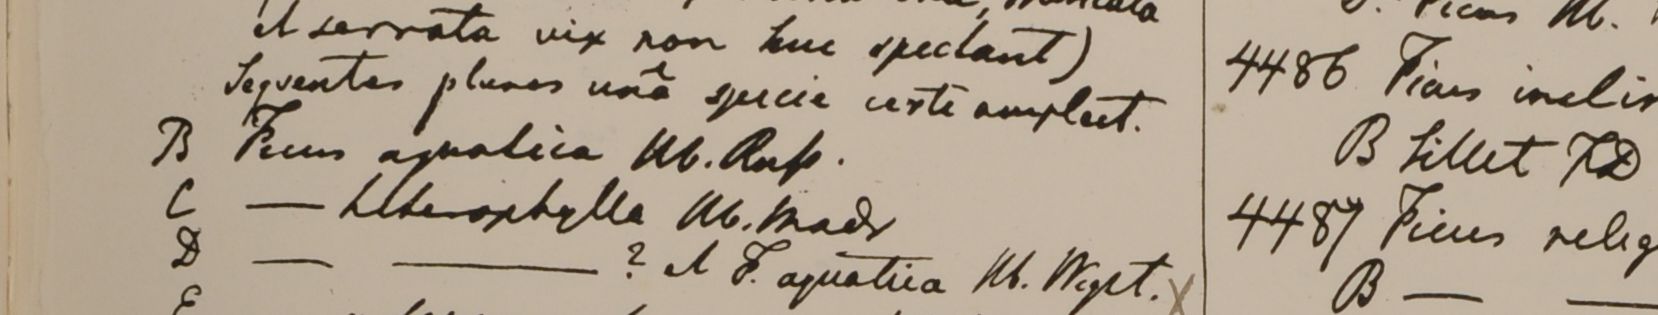 et serrata vix non huc spectant)
Sequentes plures unâ specie certè amplect.
B Ficus aquatica Hb. Ruß.
C — heterophylla Hb. Madr
D — — ? et F. aquatica Hb. Wight. X
E
F. Ficus Hb.
4486 Ficus inclin
B Sillet FD
4487 Ficus relig
B — —